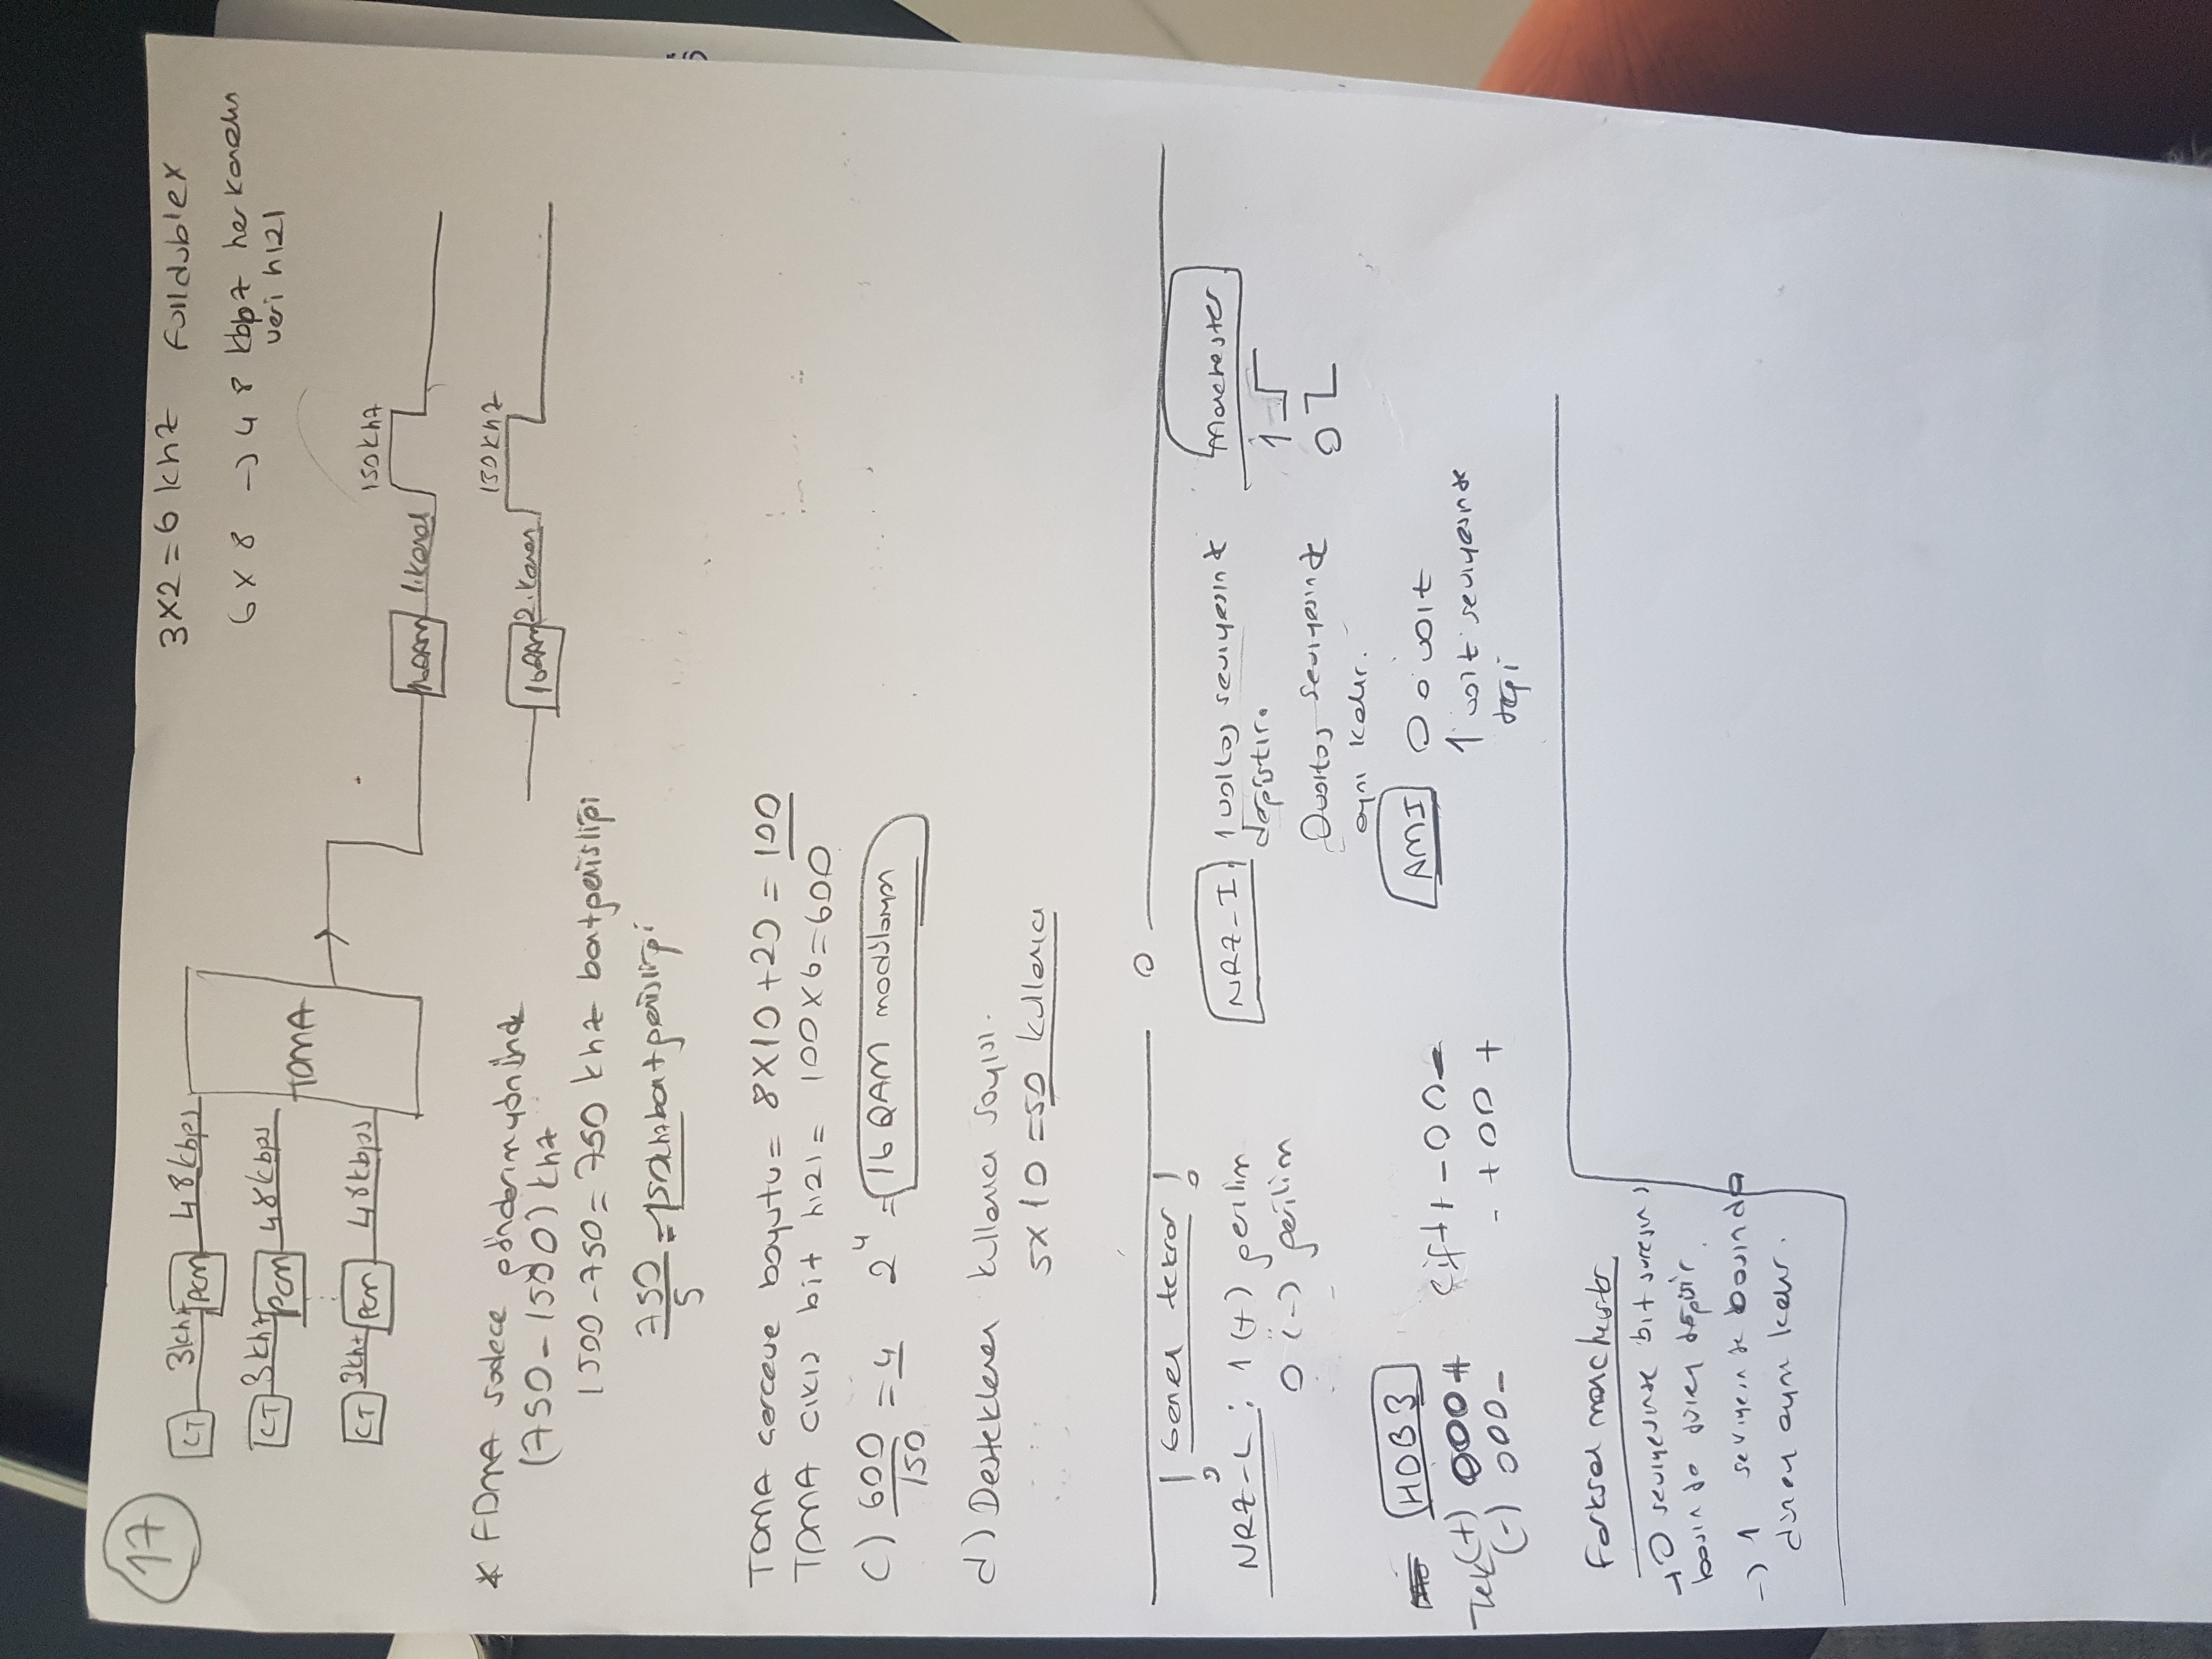 17
CT 3khz PCM 48kbps
CT 3khz PCM 48kbps
CT 3khz PCM 48kbps
TDMA
3x2=6 khz fulldublex
6 x 8 → 48 kbpz her kanalın
veri hızı
16QAM 1.kanal 150khz
16QAM 2.kanal 150khz
* FDMA sadece gönderim yönünde
(750-1500) khz
1500-750=750 khz bantgenişliği
750/5 = 150khz bantgenişliği
TDMA cerceve boyutu = 8x10+20 = 100
TDMA cıkıs bit hızı = 100x6=600
c) 600/150 = 4 2^4 = 16 QAM modülasyon
d) Desteklenen kullanıcı sayısı.
5x10 =50 kullanıcı
! Genel tekrar !
NRZ-L : 1 (+) gerilim
0 (-) gerilim
NRZ-I: 1 voltaj seviyesinde
değiştir.
0 voltaj seviyesinde
aynı kalır.
Manchester
1
0
HDB3
Tek (+) 000+
(-) 000-
Çift + -00-
- +00+
AMI 0 0 volt
1 volt seviyesinde
Farksal manchester
→ 0 seviyesinde bit süresini
basında düzey değişir.
→ 1 seviyesinde basında
düzey aynı kalır.